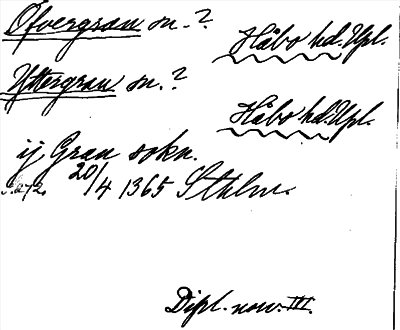 Öfvergran sn. ?
Håbo hd. Upl.
Yttergran sn. ?
Håbo hd. Upl.
ij Gran sokn.
s. 272. 20/4 1365 Sthlm.
Dipl. nov. III.